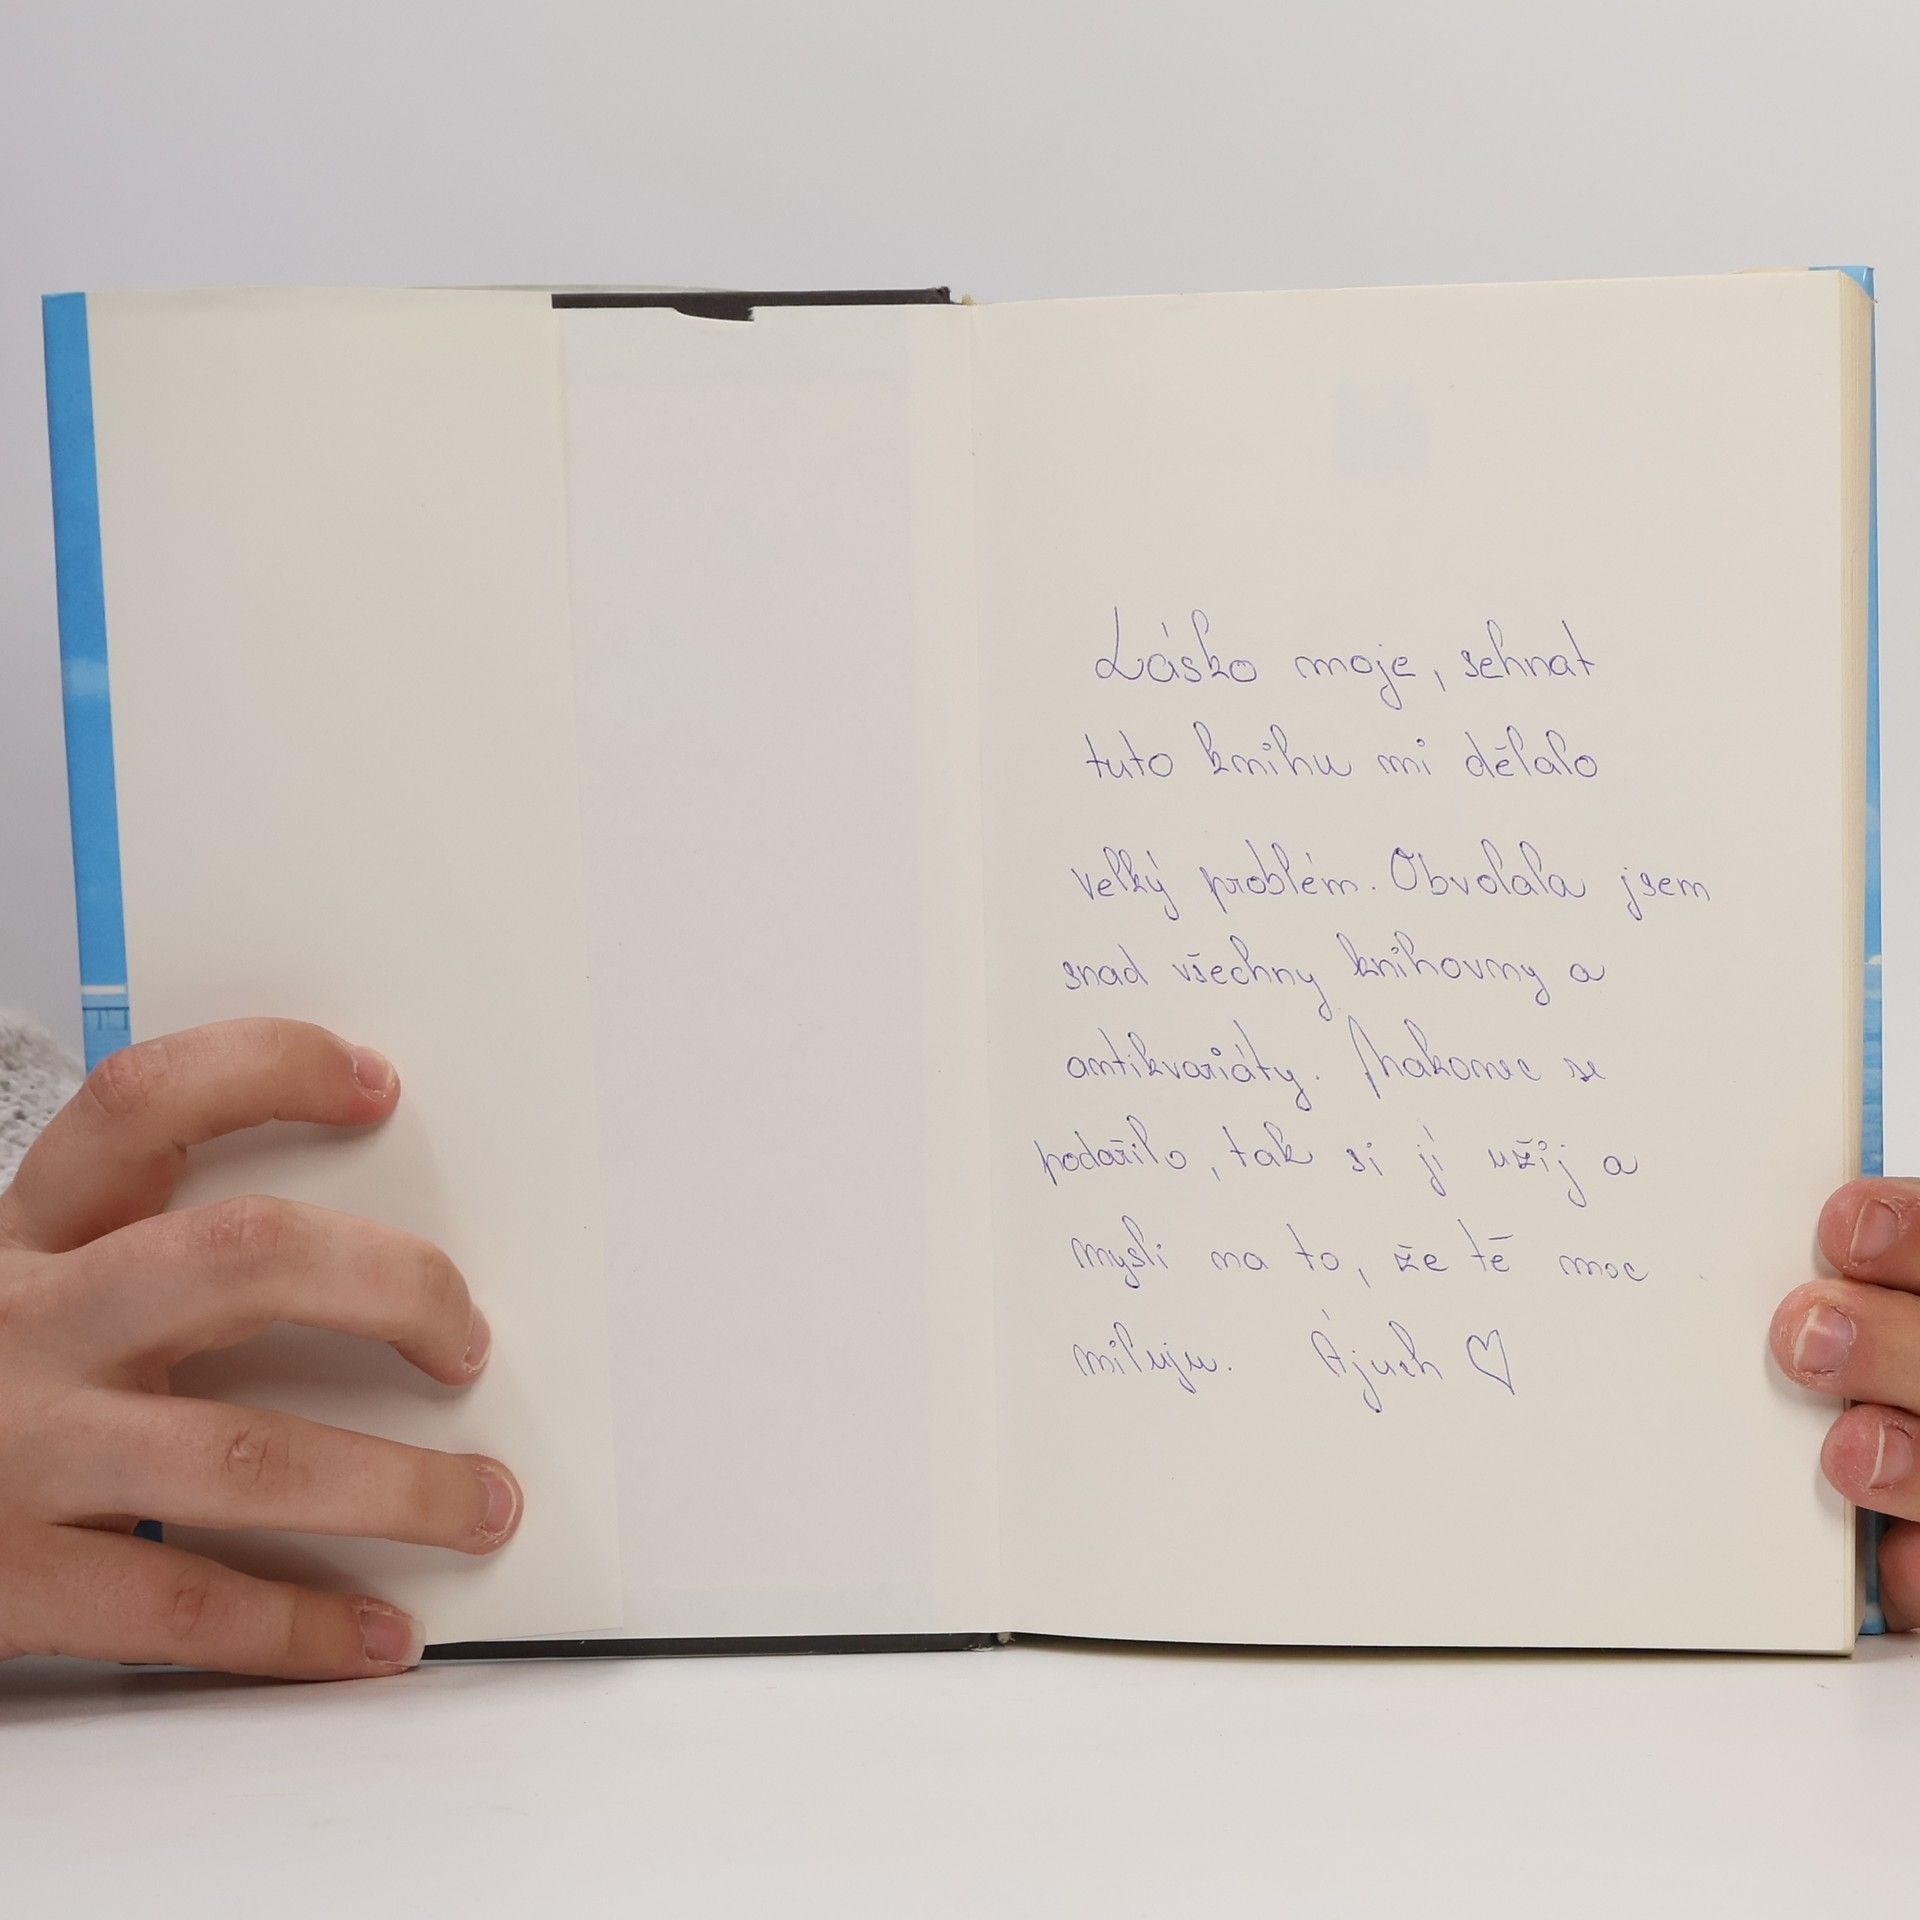 Lásko moje, sehnat
tuto knihu mi dělalo
velký problém. Obvolala jsem
snad všechny knihovny a
antikvariáty. Nakonec se
podařilo, tak si jí užij a
mysli na to, že tě moc
miluju. Ájuch ♡